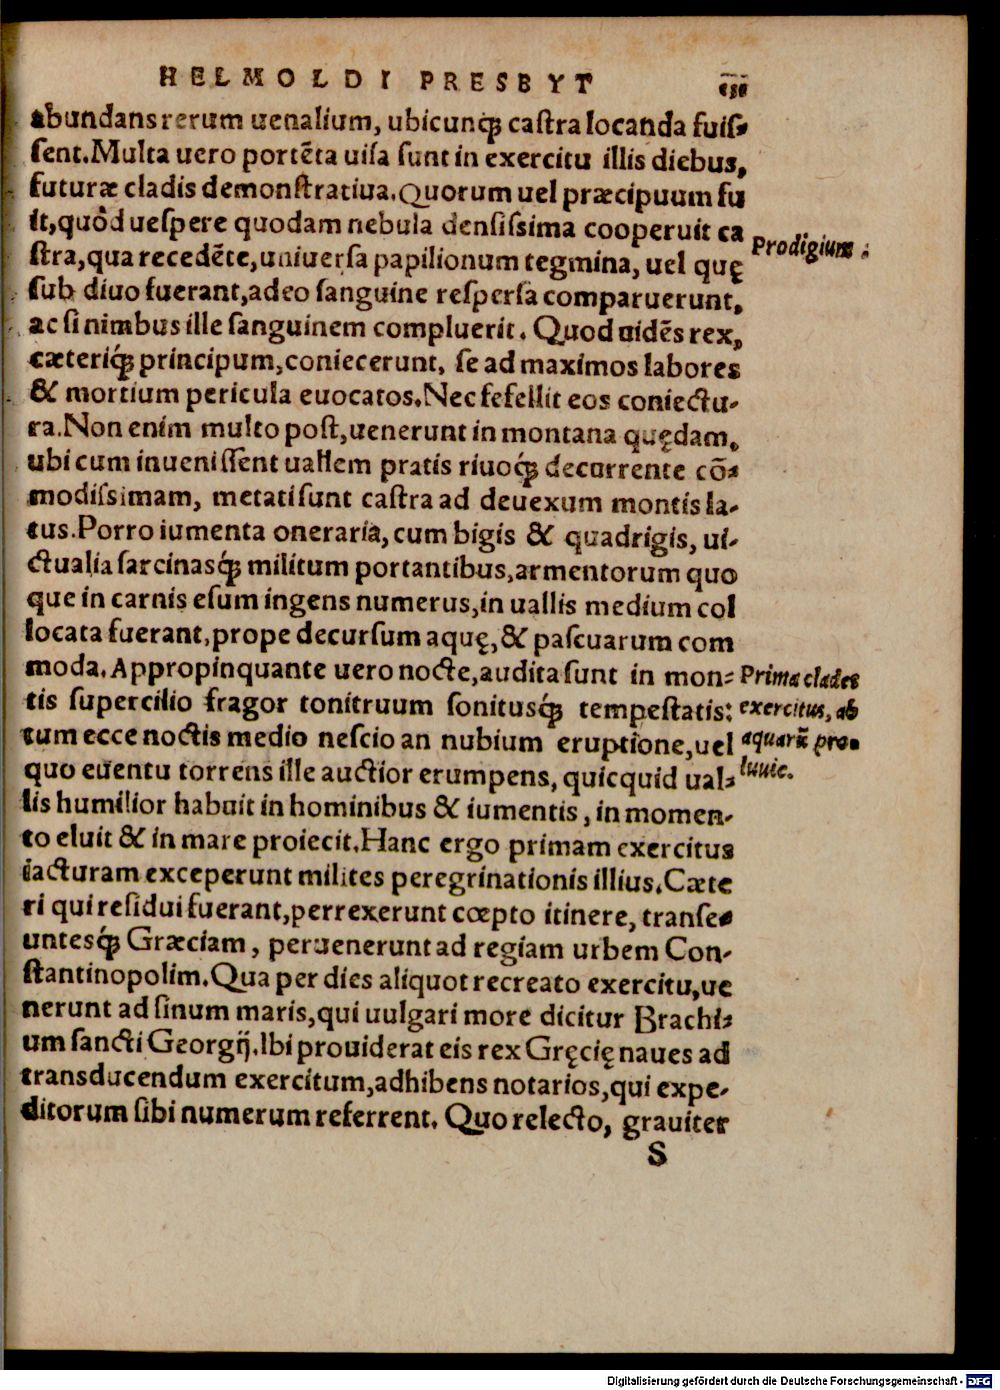 HELMOLDI PRESBYT
abundans rerum uenalium, ubicunq́ꝫ castra locanda fuis-
sent. Multa uero portẽta uisa sunt in exercitu illis diebus,
futuræ cladis demonstratiua. Quorum uel præcipuum fu
it, quòd uespere quodam nebula densissima cooperuit ca
stra, qua recedẽte, uniuersa papilionum tegmina, uel quę
Prodigium.
sub diuo fuerant, adeo sanguine respersa comparuerunt,
ac si nimbus ille sanguinem compluerit. Quod uidẽs rex,
cæteriq́ꝫ principum, coniecerunt, se ad maximos labores
& mortium pericula euocatos. Nec fefellit eos coniectu-
ra. Non enim multo post, uenerunt in montana quędam,
ubi cum inuenissent uallem pratis riuoq́ꝫ decurrente cõ-
modissimam, metati sunt castra ad deuexum montis la-
tus. Porro iumenta oneraria, cum bigis & quadrigis, ui-
ctualia sarcinasq́ꝫ militum portantibus, armentorum quo
que in carnis esum ingens numerus, in uallis medium col
locata fuerant, prope decursum aquę, & pascuarum com
moda. Appropinquante uero nocte, audita sunt in mon-
tis supercilio fragor tonitruum sonitusq́ꝫ tempestatis:
tum ecce noctis medio nescio an nubium eruptione, uel
quo euentu torrens ille auctior erumpens, quicquid ual-
Prima clades
exercitus, ab
aquarũ pro-
luuie.
lis humilior habuit in hominibus & iumentis, in momen-
to eluit & in mare proiecit. Hanc ergo primam exercitus
iacturam exceperunt milites peregrinationis illius. Cæte
ri qui residui fuerant, perrexerunt cœpto itinere, transe-
untesq́ꝫ Græciam, peruenerunt ad regiam urbem Con-
stantinopolim. Qua per dies aliquot recreato exercitu, ue
nerunt ad sinum maris, qui uulgari more dicitur Brachi-
um sancti Georgij. Ibi prouiderat eis rex Gręcię naues ad
transducendum exercitum, adhibens notarios, qui expe-
ditorum sibi numerum referrent. Quo relecto, grauiter
S
Digitalisierung gefördert durch die Deutsche Forschungsgemeinschaft - DFG